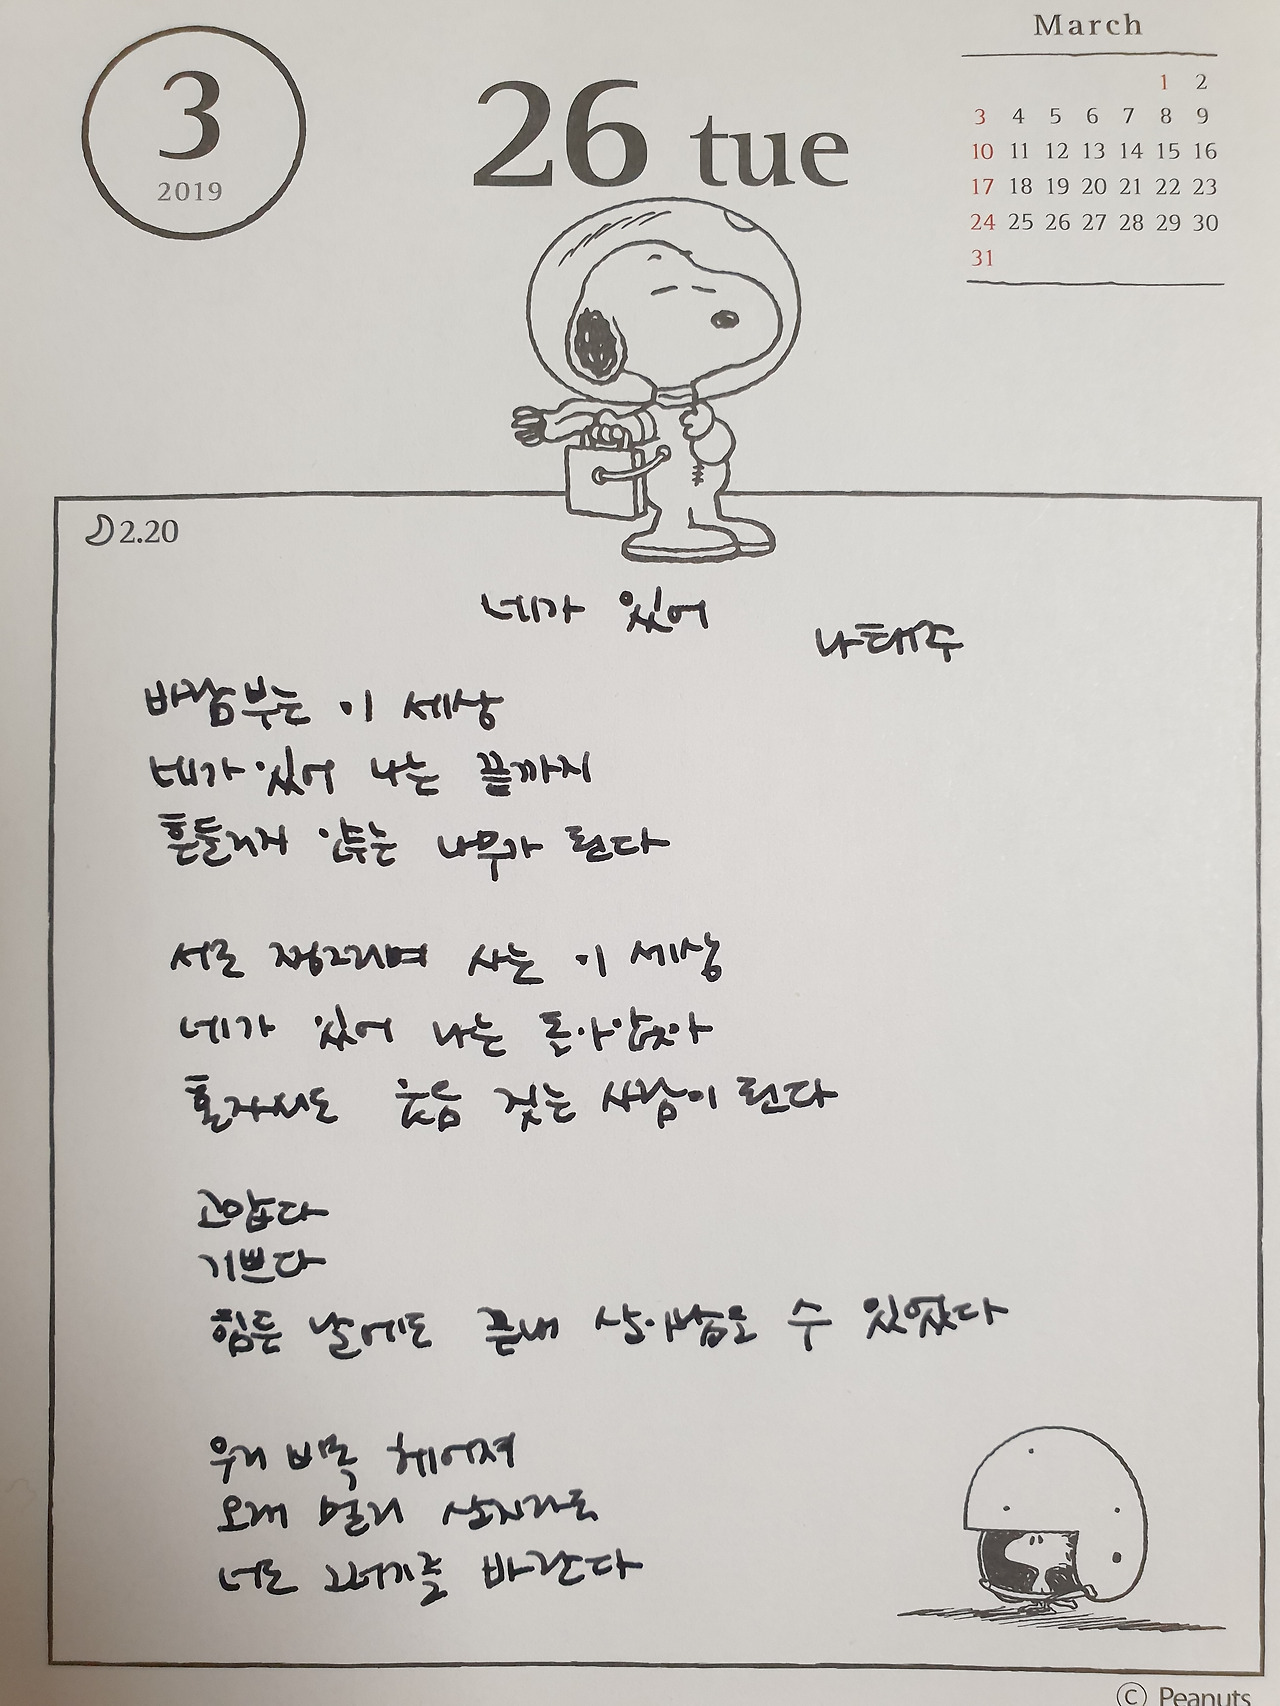 March
3
2019
26 tue
1 2
3 4 5 6 7 8 9
10 11 12 13 14 15 16
17 18 19 20 21 22 23
24 25 26 27 28 29 30
31
2.20
네가 있어
나태주
바람부는 이 세상
네가 있어 나는 끝까지
흔들리지 않는 나무가 된다
서로 찡그리며 사는 이 세상
네가 있어 나는 돌아앉아
혼자서도 웃음 짓는 사람이 된다
고맙다
기쁘다
힘든 날에도 끝내 살아남을 수 있었다
우리 비록 헤어져
오래 멀리 살지라도
너도 그러기를 바란다
© Peanuts